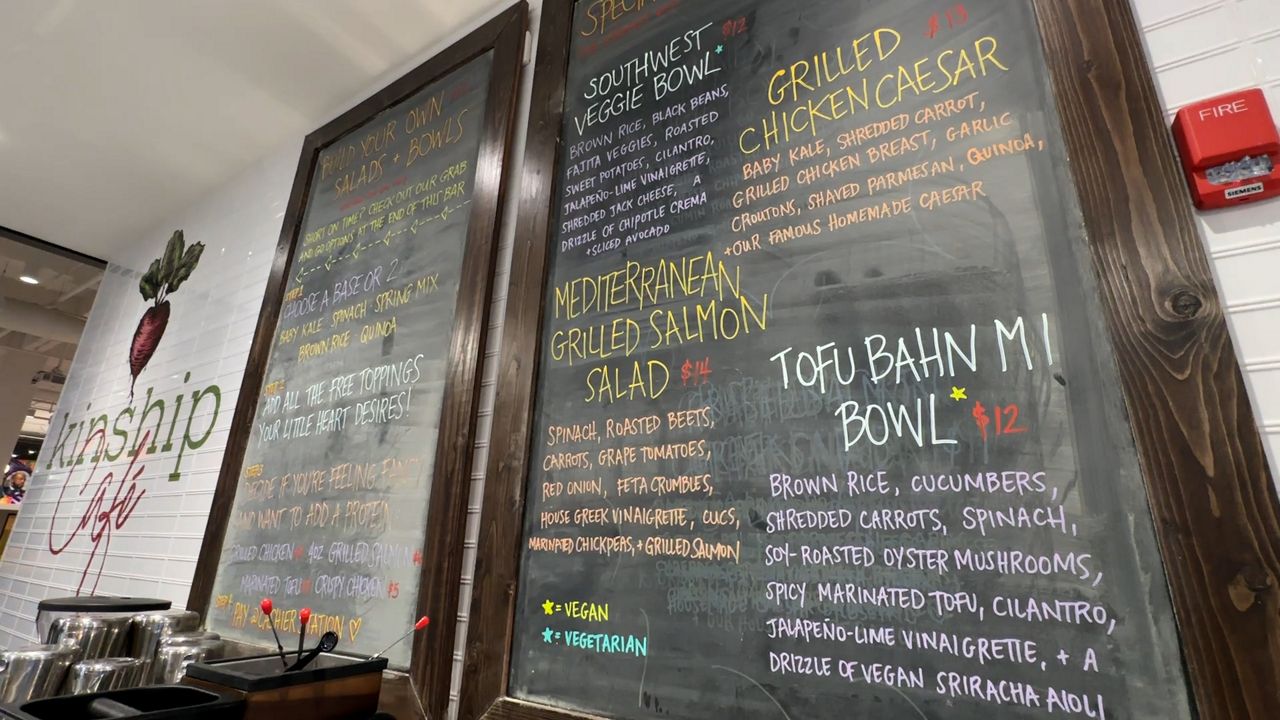 kinship
Café
BUILD YOUR OWN
SALADS + BOWLS
SHORT ON TIME? CHECK OUT OUR GRAB
AND GO OPTIONS AT THE END OF THIS BAR
STEP 1
CHOOSE A BASE OR 2
BABY KALE · SPINACH · SPRING MIX
BROWN RICE · QUINOA
STEP 2
ADD ALL THE FREE TOPPINGS
YOUR LITTLE HEART DESIRES!
STEP 3
DECIDE IF YOU'RE FEELING FANCY
AND WANT TO ADD A PROTEIN
GRILLED CHICKEN 4oz GRILLED SALMON
MARINATED TOFU CRISPY CHICKEN $5
STEP 4
PAY @ CASHIER STATION ♡
SOUTHWEST $12
VEGGIE BOWL*
BROWN RICE, BLACK BEANS,
FAJITA VEGGIES, ROASTED
SWEET POTATOES, CILANTRO,
JALAPEÑO-LIME VINAIGRETTE,
SHREDDED JACK CHEESE, A
DRIZZLE OF CHIPOTLE CREMA
+SLICED AVOCADO
GRILLED $13
CHICKEN CAESAR
BABY KALE, SHREDDED CARROT,
GRILLED CHICKEN BREAST, GARLIC
CROUTONS, SHAVED PARMESAN, QUINOA,
+OUR FAMOUS HOMEMADE CAESAR
MEDITERRANEAN
GRILLED SALMON
SALAD $14
SPINACH, ROASTED BEETS,
CARROTS, GRAPE TOMATOES,
RED ONION, FETA CRUMBLES,
HOUSE GREEK VINAIGRETTE, CUCS,
MARINATED CHICKPEAS, + GRILLED SALMON
★ = VEGAN
★ = VEGETARIAN
TOFU BAHN MI
BOWL★ $12
BROWN RICE, CUCUMBERS,
SHREDDED CARROTS, SPINACH,
SOY-ROASTED OYSTER MUSHROOMS,
SPICY MARINATED TOFU, CILANTRO,
JALAPEÑO-LIME VINAIGRETTE, + A
DRIZZLE OF VEGAN SRIRACHA AIOLI
FIRE
SIEMENS